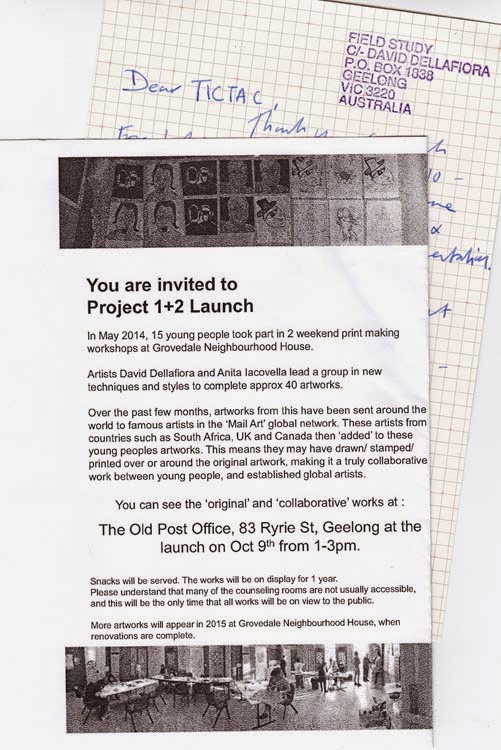 FIELD STUDY
C/- DAVID DELLAFIORA
P.O. BOX 1838
GEELONG
VIC 3220
AUSTRALIA
Dear TICTAC,
Thank
You are invited to
Project 1+2 Launch
In May 2014, 15 young people took part in 2 weekend print making
workshops at Grovedale Neighbourhood House.
Artists David Dellafiora and Anita Iacovella lead a group in new
techniques and styles to complete approx 40 artworks.
Over the past few months, artworks from this have been sent around the
world to famous artists in the 'Mail Art' global network. These artists from
countries such as South Africa, UK and Canada then 'added' to these
young peoples artworks. This means they may have drawn/ stamped/
printed over or around the original artwork, making it a truly collaborative
work between young people, and established global artists.
You can see the 'original' and 'collaborative' works at :
The Old Post Office, 83 Ryrie St, Geelong at the
launch on Oct 9th from 1-3pm.
Snacks will be served. The works will be on display for 1 year.
Please understand that many of the counseling rooms are not usually accessible,
and this will be the only time that all works will be on view to the public.
More artworks will appear in 2015 at Grovedale Neighbourhood House, when
renovations are complete.